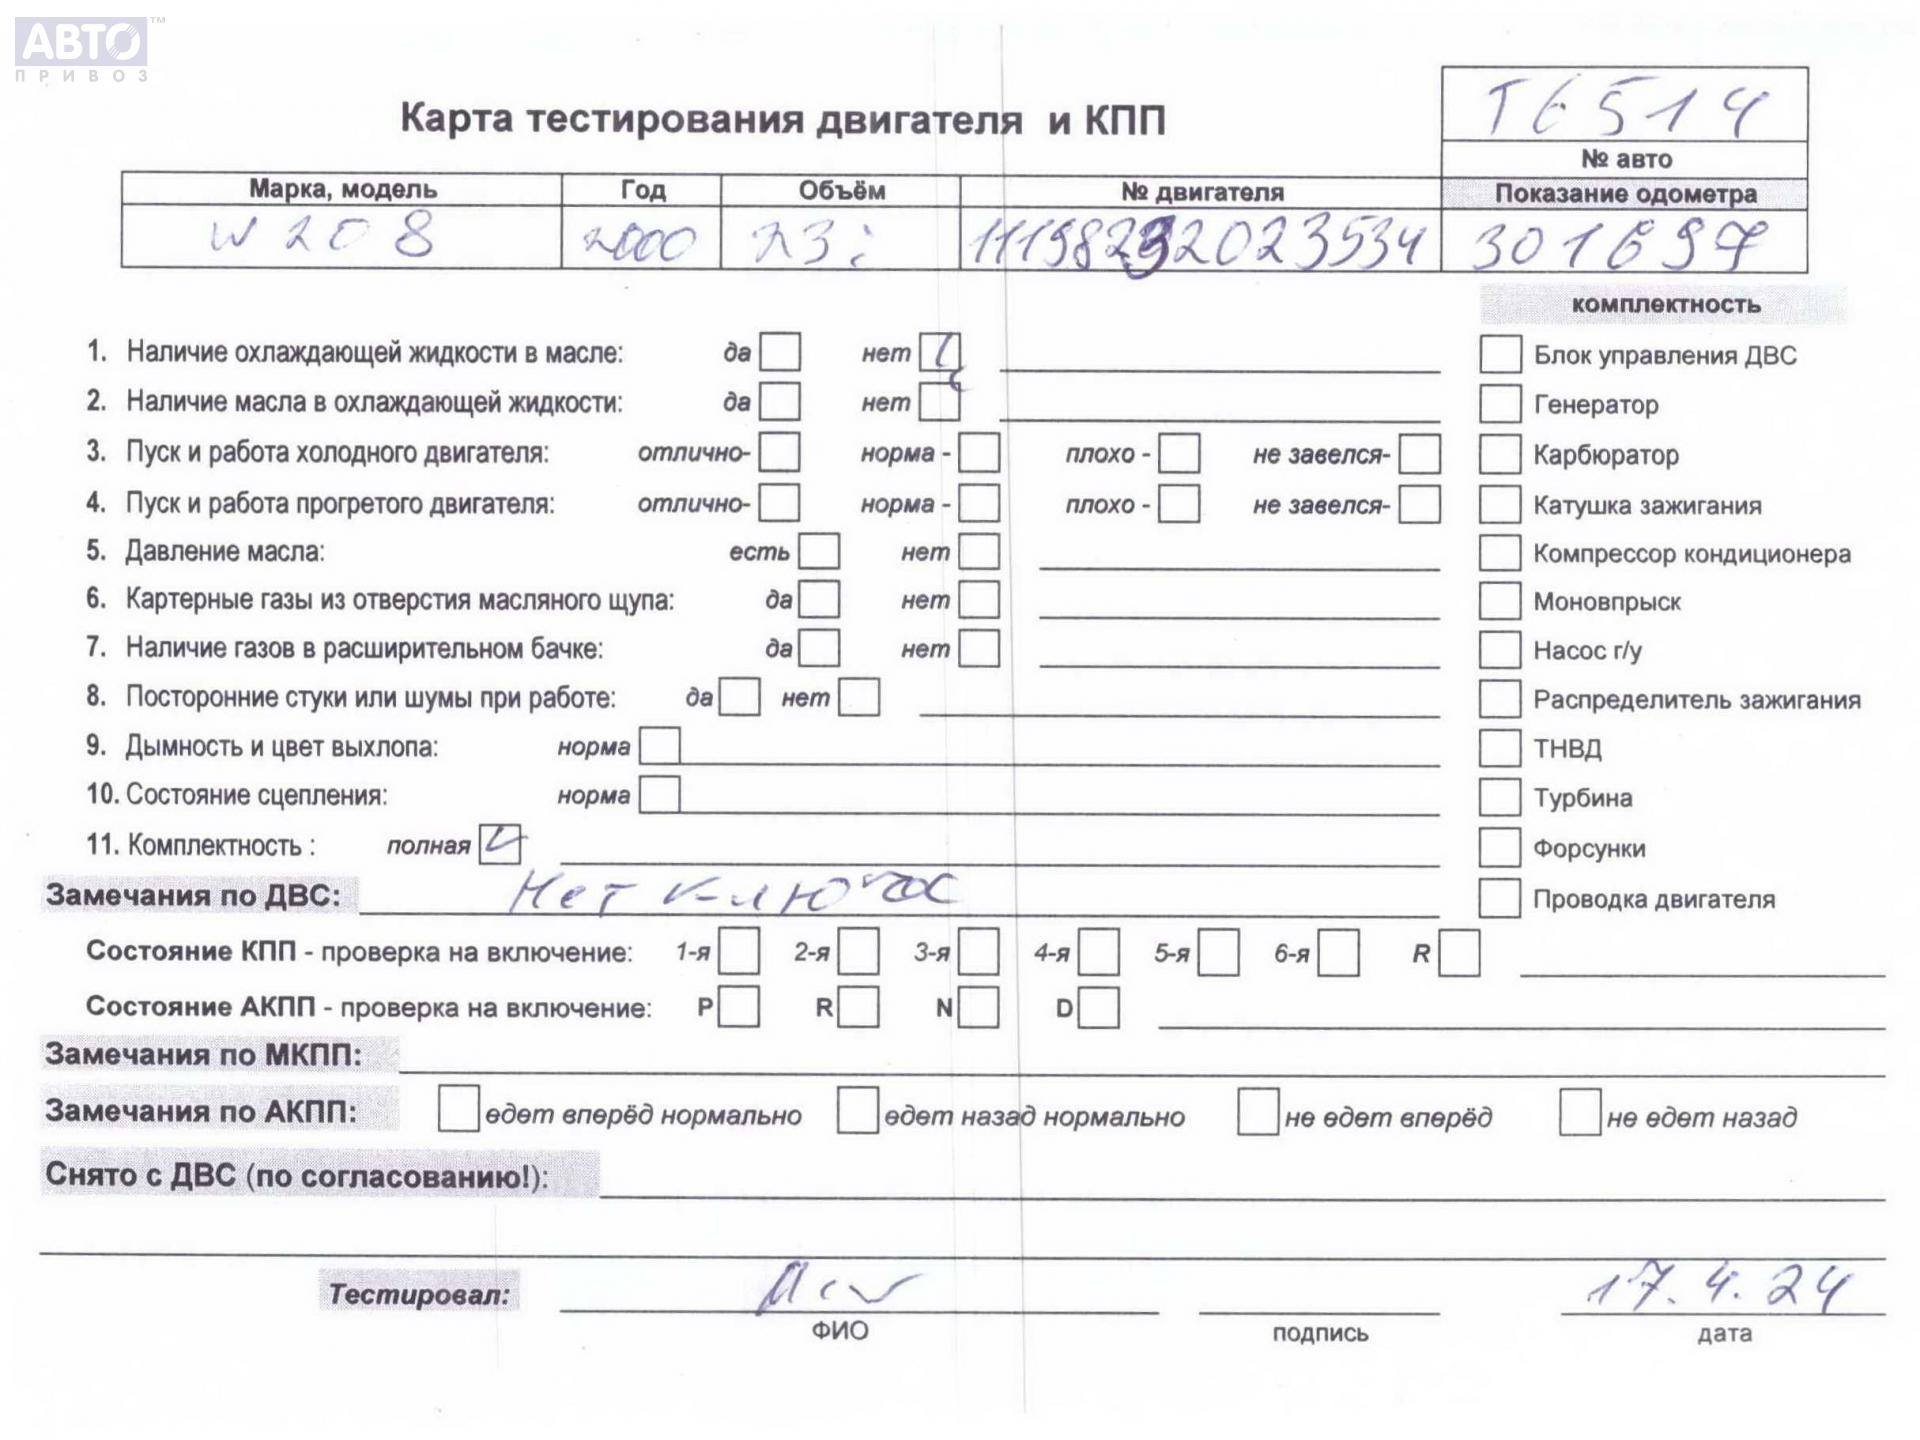 АВТО™
ПРИВОЗ
Карта тестирования двигателя и КПП
T6514
№ авто
Марка, модель Год Объём № двигателя Показание одометра
W208 2000 23i 301697
комплектность
1. Наличие охлаждающей жидкости в масле: да нет
Блок управления ДВС
2. Наличие масла в охлаждающей жидкости: да нет
Генератор
3. Пуск и работа холодного двигателя: отлично- норма - плохо - не завелся-
Карбюратор
4. Пуск и работа прогретого двигателя: отлично- норма - плохо - не завелся-
Катушка зажигания
5. Давление масла: есть нет
Компрессор кондиционера
6. Картерные газы из отверстия масляного щупа: да нет
Моновпрыск
7. Наличие газов в расширительном бачке: да нет
Насос г/у
8. Посторонние стуки или шумы при работе: да нет
Распределитель зажигания
9. Дымность и цвет выхлопа: норма
ТНВД
10. Состояние сцепления: норма
Турбина
11. Комплектность : полная
Форсунки
Замечания по ДВС: Нет ключа
Проводка двигателя
Состояние КПП - проверка на включение: 1-я 2-я 3-я 4-я 5-я 6-я R
Состояние АКПП - проверка на включение: P R N D
Замечания по МКПП:
Замечания по АКПП: едет вперёд нормально едет назад нормально не едет вперёд не едет назад
Снято с ДВС (по согласованию!):
Тестировал: 17.4.24
ФИО подпись дата